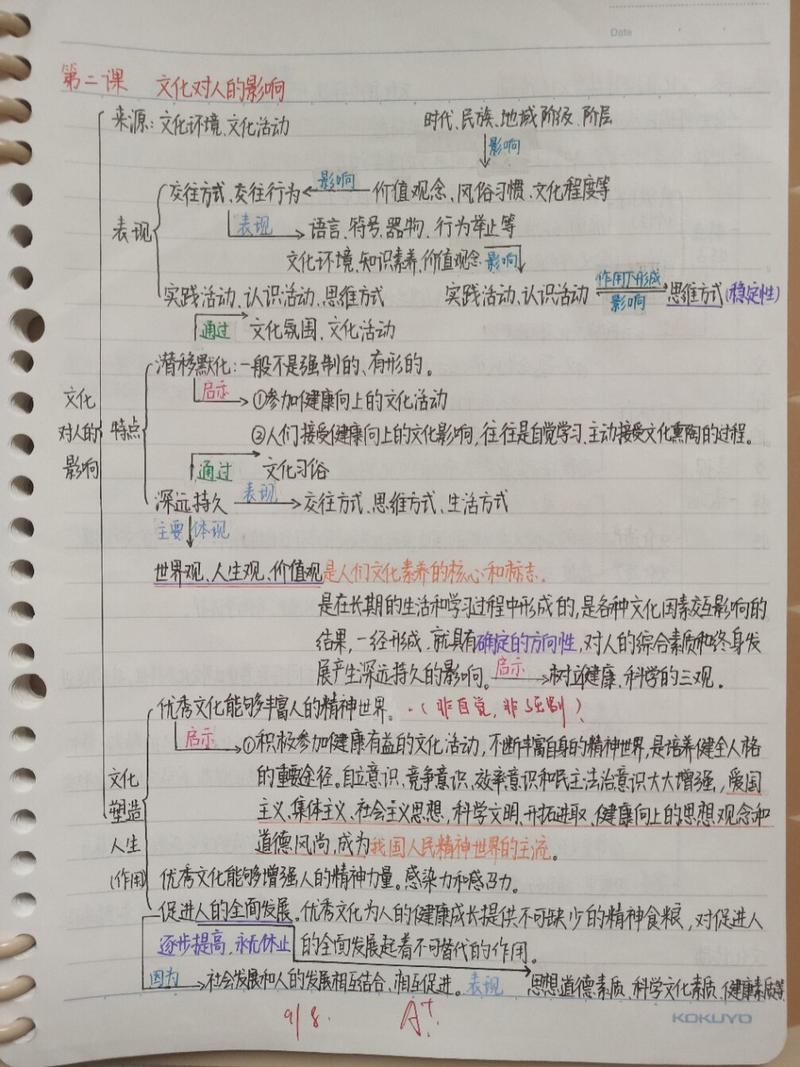 Date
第二课 文化对人的影响
来源:文化环境、文化活动 时代、民族、地域、阶级、阶层
影响
交往方式、交往行为 影响 价值观念、风俗习惯、文化程度等
表现 语言、符号、器物、行为举止等
表现
文化环境、知识素养、价值观念 影响
实践活动、认识活动、思维方式 实践活动、认识活动 作用下形成 影响 思维方式(稳定性)
通过 文化氛围、文化活动
潜移默化:一般不是强制的、有形的。
启示 ①参加健康向上的文化活动
文化对人的影响
特点
②人们接受健康向上的文化影响,往往是自觉学习、主动接受文化熏陶的过程。
通过 文化习俗
深远持久 表现 交往方式、思维方式、生活方式
主要 体现
世界观、人生观、价值观是人们文化素养的核心和标志。
是在长期的生活和学习过程中形成的,是各种文化因素交互影响的
结果,一经形成,就具有确定的方向性,对人的综合素质和终身发
展产生深远持久的影响。启示 树立健康、科学的三观。
优秀文化能够丰富人的精神世界。(非自觉,非强制)
启示 ①积极参加健康有益的文化活动,不断丰富自身的精神世界,是培养健全人格
文化塑造人生(作用)
的重要途径。自立意识、竞争意识、效率意识和民主法治意识大大增强,爱国
主义、集体主义、社会主义思想,科学文明、开拓进取、健康向上的思想观念和
道德风尚,成为我国人民精神世界的主流。
优秀文化能够增强人的精神力量。感染力和感召力。
促进人的全面发展。优秀文化为人的健康成长提供不可缺少的精神食粮,对促进人
逐步提高,永无休止 的全面发展起着不可替代的作用。
因为 社会发展和人的发展相互结合、相互促进。表现 思想道德素质、科学文化素质、健康素质等
9/8. A+
KOKUYO